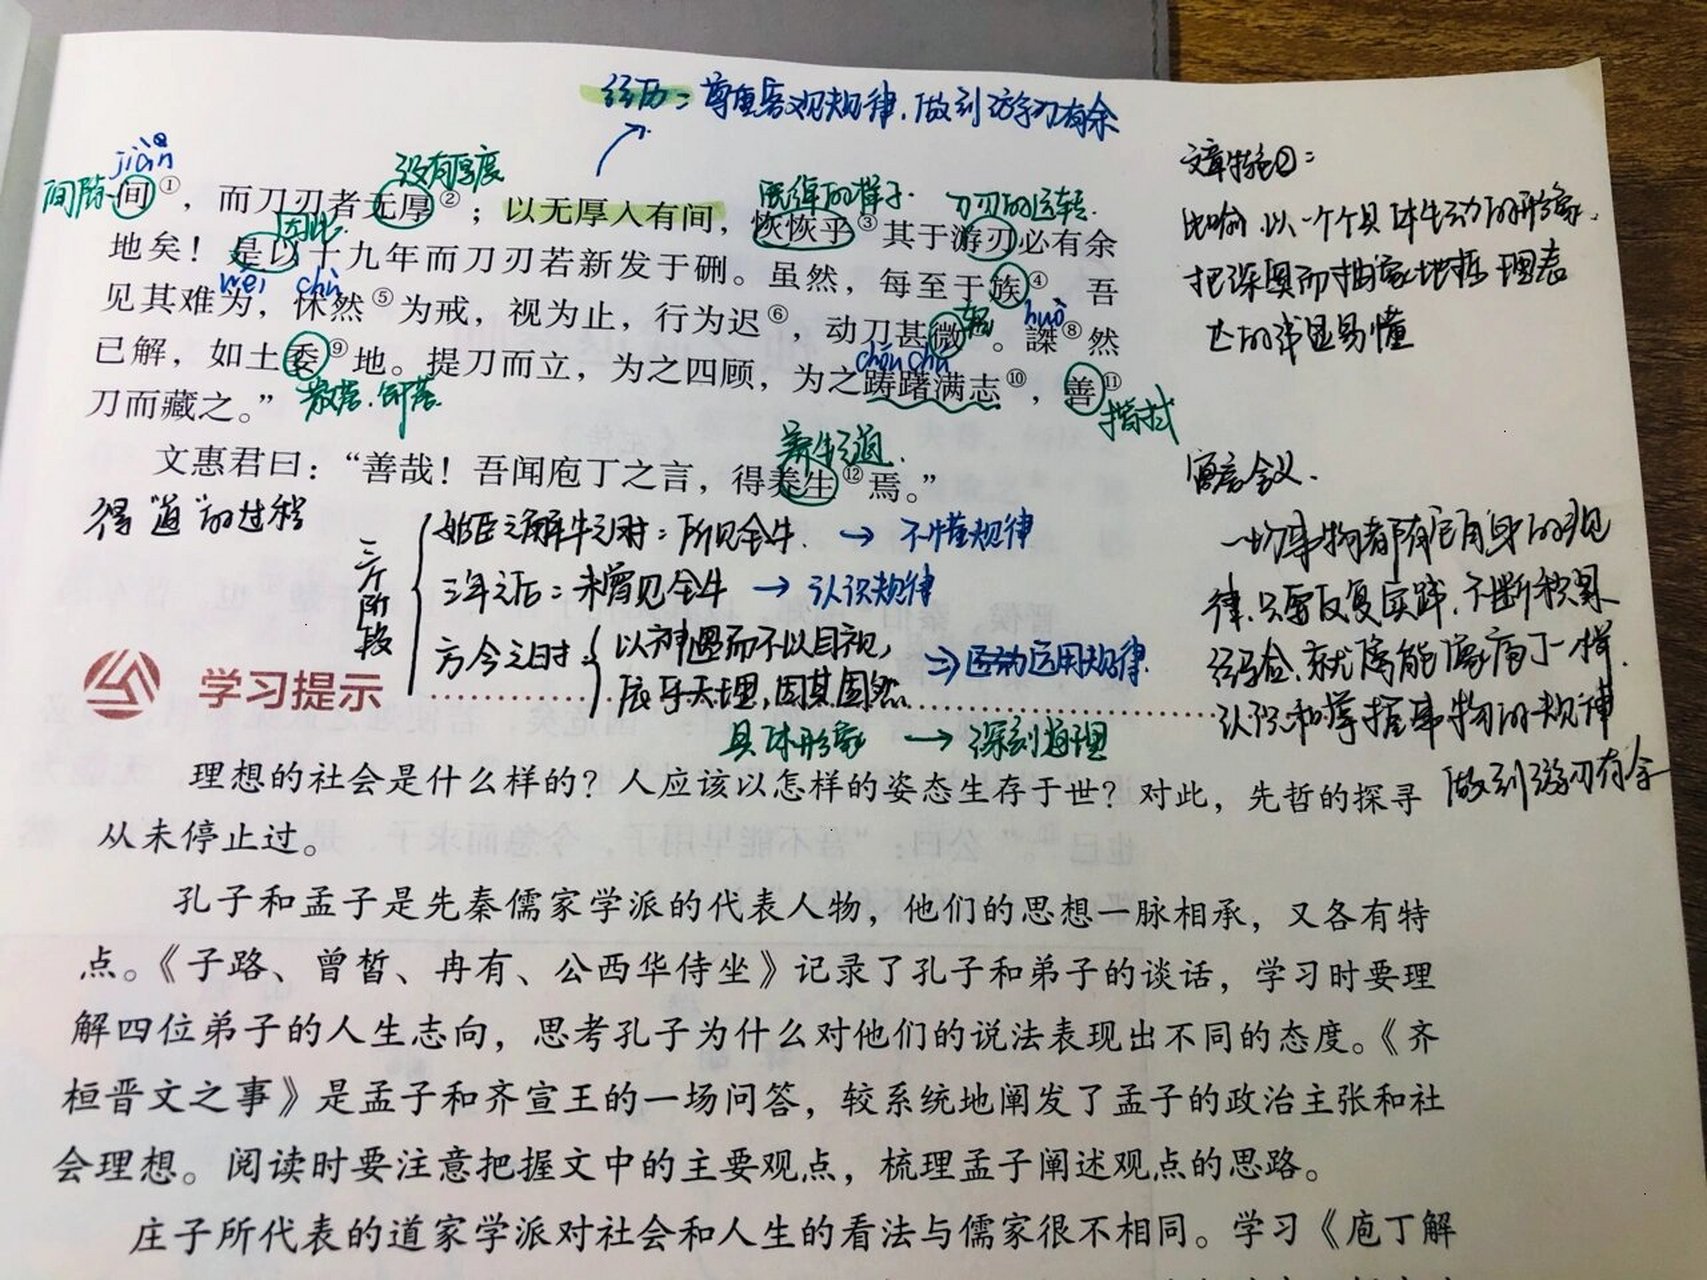 经历：尊重客观规律，做到游刃有余
jiàn
间隙
没有厚度
因此
很绰的样子.
刀刃的运转.
间①，而刀刃者无厚②；以无厚入有间，恢恢乎③其于游刃必有余
地矣！是以十九年而刀刃若新发于硎。虽然，每至于族④，吾
wéi chù
轻 huò
见其难为，怵然⑤为戒，视为止，行为迟⑥，动刀甚微。謋⑧然
chóu chú
已解，如土委⑨地。提刀而立，为之四顾，为之踌躇满志⑩，善⑪
散落.卸落.
揩拭
刀而藏之。”
养生之道.
文惠君曰：“善哉！吾闻庖丁之言，得养生⑫焉。”
文章特色②：
比喻.以一个个具体生动的形象.
把深奥而抽象地哲理表
达的浅显易懂
寓言含义.
一切事物都有它自身的规
律.只要反复实践.不断积累
经验.就能像庖丁一样.
认识和掌握事物的规律
做到游刃有余
得“道”的过程
三个阶段
始臣之解牛之时：所见全牛. → 不懂规律
三年之后：未曾见全牛 → 认识规律
方今之时：以神遇而不以目视，
依乎天理，因其固然. ⇒ 运用规律.
具体形象 → 深刻道理
学习提示
理想的社会是什么样的？人应该以怎样的姿态生存于世？对此，先哲的探寻
从未停止过。
孔子和孟子是先秦儒家学派的代表人物，他们的思想一脉相承，又各有特
点。《子路、曾皙、冉有、公西华侍坐》记录了孔子和弟子的谈话，学习时要理
解四位弟子的人生志向，思考孔子为什么对他们的说法表现出不同的态度。《齐
桓晋文之事》是孟子和齐宣王的一场问答，较系统地阐发了孟子的政治主张和社
会理想。阅读时要注意把握文中的主要观点，梳理孟子阐述观点的思路。
庄子所代表的道家学派对社会和人生的看法与儒家很不相同。学习《庖丁解